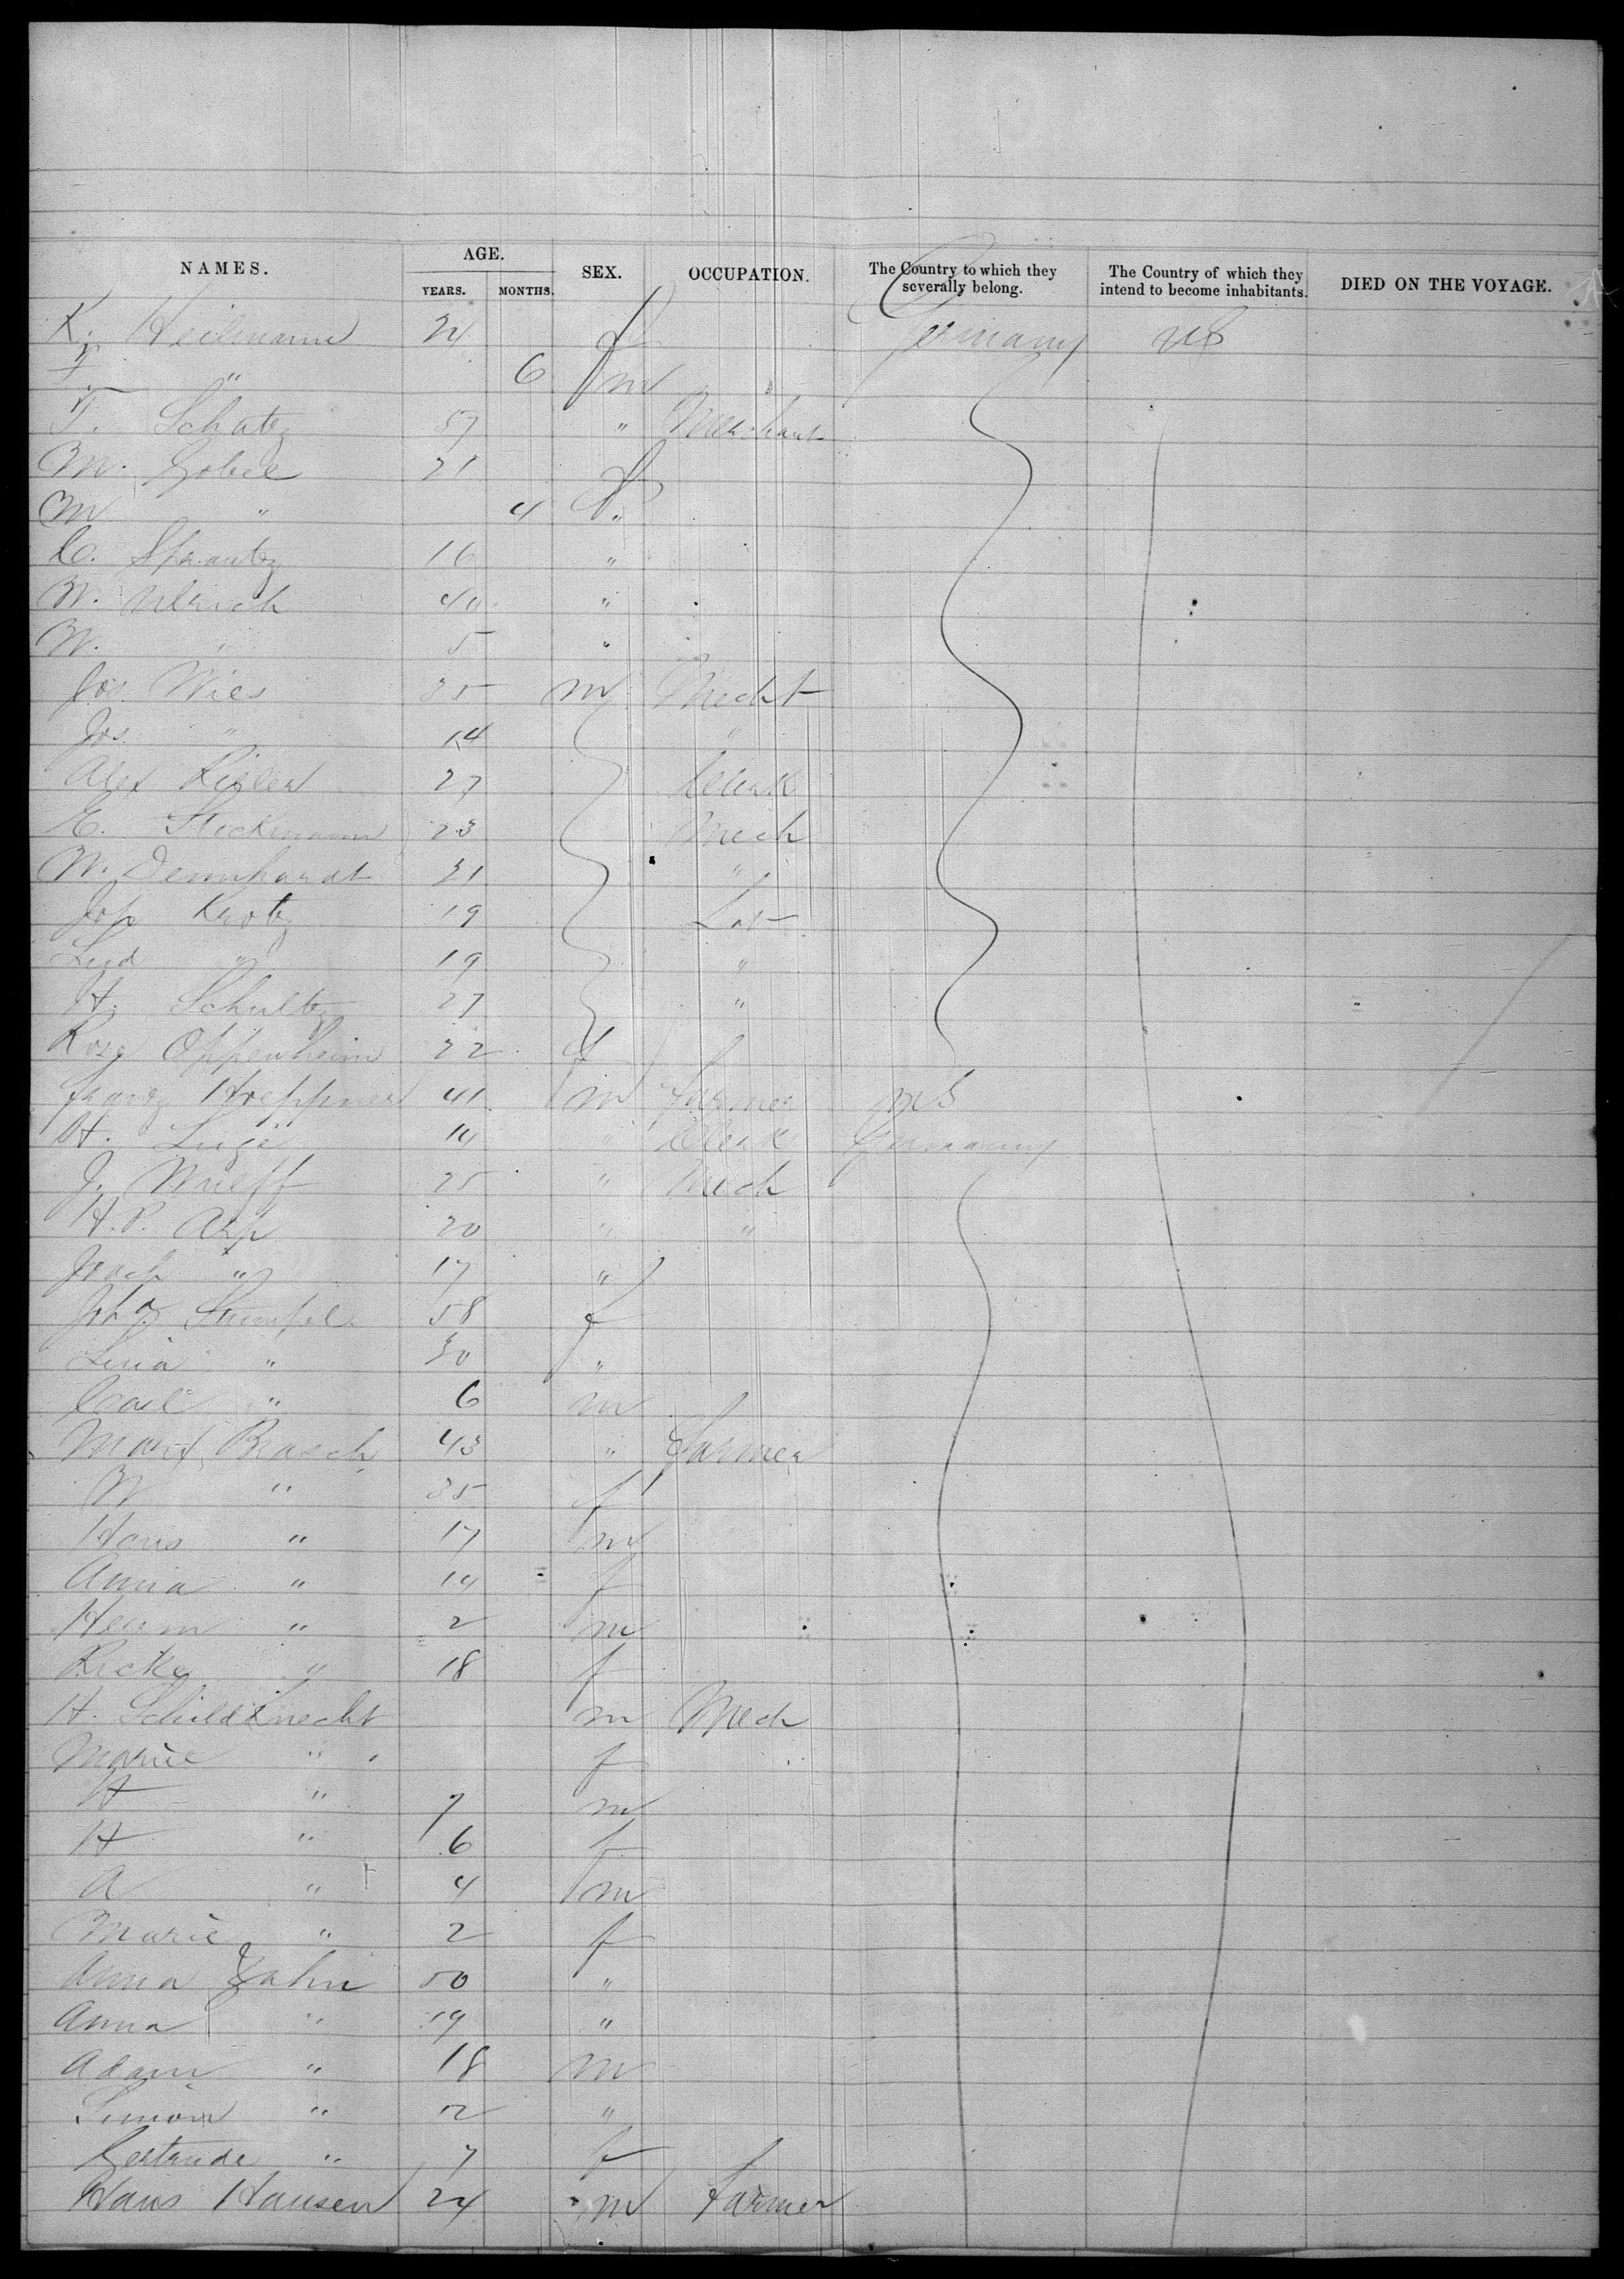 NAMES. AGE. SEX. OCCUPATION. The Country to which they severally belong. The Country of which they intend to become inhabitants. DIED ON THE VOYAGE.
YEARS. MONTHS.
K. Heilmann 24 f Germany US
F. " 6 m
T. Schatz 57 " Merchant
M. Gobel 21 f
M " 4 "
C. 16 "
W. Ulrich 40 "
W. " 5 "
Jos. Wies 35 m Mecht
Jos. " 14 "
Alex 27 Clerk
E. Steckmann 23 Mech
W. Dennhardt 31 "
Jos Krotz 19 Lab
" 19 "
H. Schultz 27 "
Rosa Oppenheim 22 f
Franz Hoeppner 41 m Farmer US
H. 14 " Clerk Germany
J. 25 " Mech
H. P. Arp 20 " "
Joach " 17 "
Stumpfel 58 f
Lina " 30 "
Carl " 6 m
Mart. Brasch 43 " Farmer
W " 35 f
Hans " 17 m
Anna " 14 f
Herm " 2 m
Ricke " 18 f
H. Schildknecht m Mech
Marie " f
H " 7 m
H " 6 f
A " 4 m
Marie " 2 f
Anna Kahn 50 "
Anna " 19 "
Adam " 18 m
Simon " 12 "
Gertrude " 7 f
Hans Hansen 24 m Farmer